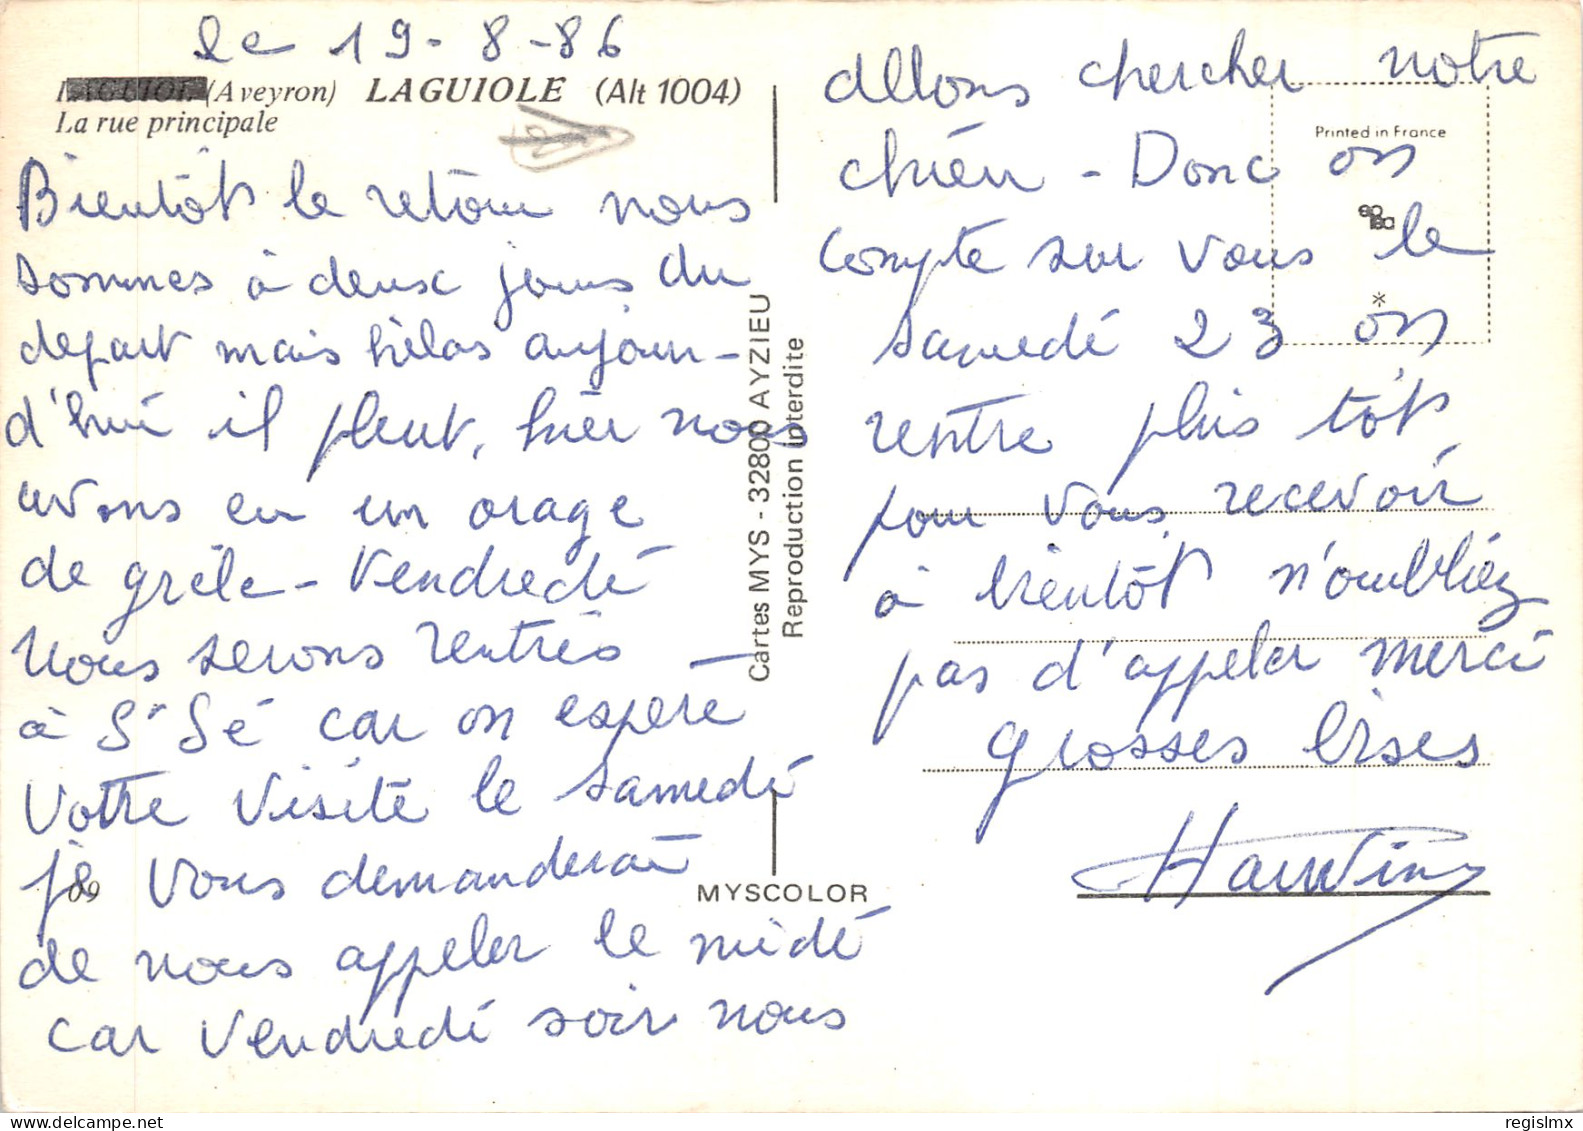 Le 19-8-86
(Aveyron) LAGUIOLE (Alt 1004)
La rue principale
Bientôt le retour nous
sommes à deux jours du
depart mais hèlas aujour-
d'hui il pleut, hier nous
avons eu un orage
de grèle - Vendredi
nous serons rentrés
à St Sé car on espère
votre visite le samedi
je vous demanderai
de nous appeler le midi
car vendredi soir nous
09
Cartes MYS - 32800 AYZIEU
Reproduction Interdite
MYSCOLOR
allons chercher notre
chien - Donc on
compte sur vous le
samedi 23 on
rentre plus tôt
pour vous recevoir
à bientôt n'oubliez
pas d'appeler merci
grosses bises
Printed in France
*
regislmx